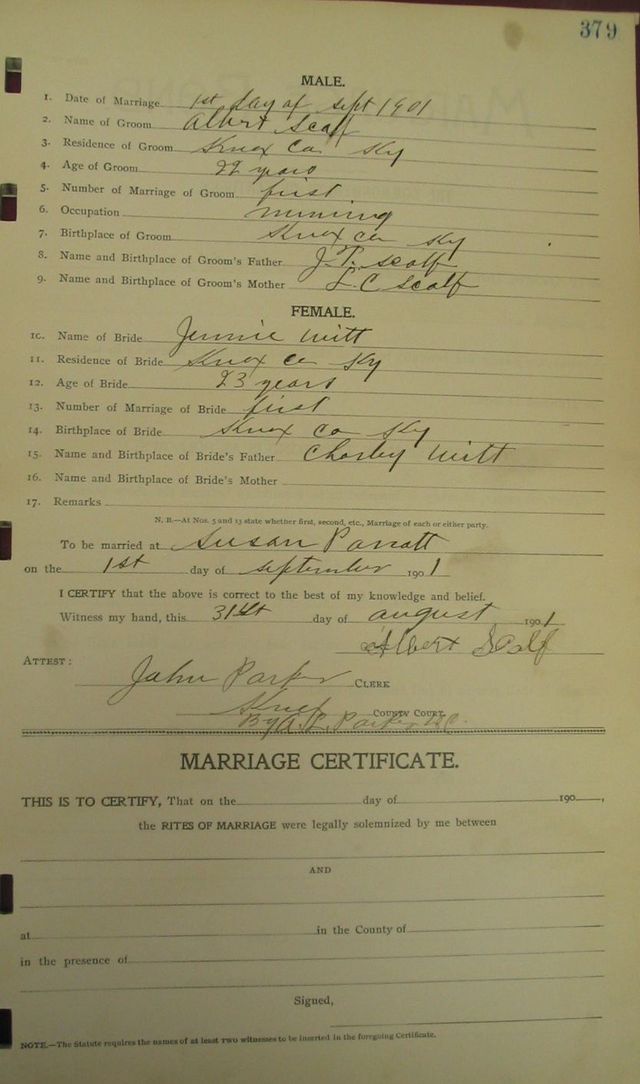 379
MALE.
1. Date of Marriage 1st day of sept 1901
2. Name of Groom Albert Scalf
3. Residence of Groom Knox Co Ky
4. Age of Groom 22 years
5. Number of Marriage of Groom first
6. Occupation mining
7. Birthplace of Groom Knox co Ky
8. Name and Birthplace of Groom's Father J. T. Scalf
9. Name and Birthplace of Groom's Mother L. C Scalf
FEMALE.
10. Name of Bride Jennie Witt
11. Residence of Bride Knox Co Ky
12. Age of Bride 23 years
13. Number of Marriage of Bride first
14. Birthplace of Bride Knox Co Ky
15. Name and Birthplace of Bride's Father Charley Witt
16. Name and Birthplace of Bride's Mother
17. Remarks
N. B.—At Nos. 5 and 13 state whether first, second, etc., Marriage of each or either party.
To be married at Susan Parrott
on the 1st day of September 1901
I CERTIFY that the above is correct to the best of my knowledge and belief.
Witness my hand, this 31st day of august 1901
Albert Scalf
ATTEST: John Parker CLERK
Knox COUNTY COURT.
By A. L. Parker D.C.
MARRIAGE CERTIFICATE.
THIS IS TO CERTIFY, That on the day of 190 ,
the RITES OF MARRIAGE were legally solemnized by me between
AND
at in the County of
in the presence of
Signed,
NOTE.—The Statute requires the names of at least two witnesses to be inserted in the foregoing Certificate.